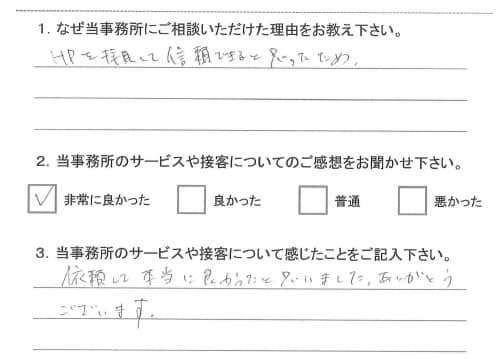 1. なぜ当事務所にご相談いただけた理由をお教え下さい。
HPを拝見して信頼できると思ったため。
2. 当事務所のサービスや接客についてのご感想をお聞かせ下さい。
非常に良かった 良かった 普通 悪かった
3. 当事務所のサービスや接客について感じたことをご記入下さい。
依頼して本当に良かったと思いました。ありがとう
ございます。